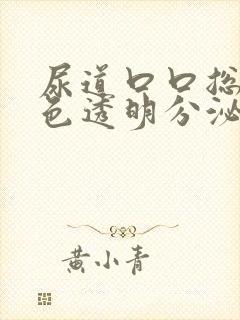 尿道口口总
色透明分泌
黄小青